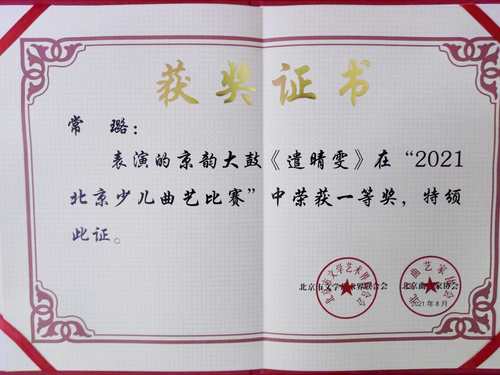 获奖证书
常璐：
表演的京韵大鼓《遣晴雯》在“2021
北京少儿曲艺比赛”中荣获一等奖，特颁
此证。
北京市文学艺术界联合会 北京曲艺家协会
2021年8月